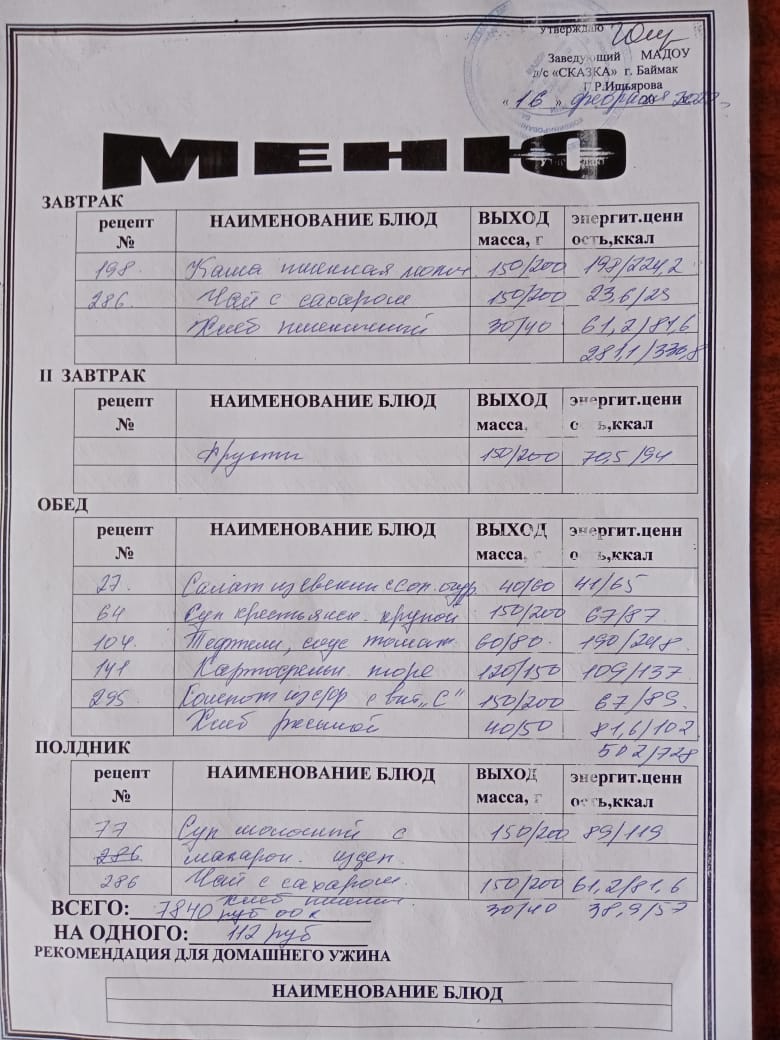 Утверждаю
Заведующий МАДОУ
д/с «СКАЗКА» г. Баймак
Г.Р.Ишьярова
« 16 » февраля
МЕНЮ
ЗАВТРАК
рецепт № НАИМЕНОВАНИЕ БЛЮД ВЫХОД масса, г энергит.ценн ость,ккал
198. Каша пшенная молоч 150/200 198/224,2
286. Чай с сахаром 150/200 23,6/25
Хлеб пшеничный 30/40 61,2/81,6
281,1/330,8
II ЗАВТРАК
рецепт № НАИМЕНОВАНИЕ БЛЮД ВЫХОД масса, энергит.ценн ость,ккал
Фрукты 150/200 70,5/94
ОБЕД
рецепт № НАИМЕНОВАНИЕ БЛЮД ВЫХОД масса, г энергит.ценн ость,ккал
27. Салат из свеклы с сол. огур 40/60 41/65
64 Суп крестьянск. крупой 150/200 67/87
104. Тефтели, соус томат 60/80 190/248
141 Картофельн пюре 120/150 109/137
295. Компот из с/ф с вит „С" 150/200 67/89.
Хлеб ржаной 40/50 81,6/102
502/728
ПОЛДНИК
рецепт № НАИМЕНОВАНИЕ БЛЮД ВЫХОД масса, г энергит.ценн ость,ккал
77 Суп молочный с 150/200 89/119
286 макарон. издел.
286 Чай с сахаром. 150/200 61,2/81,6
Хлеб пшенич. 30/40 38,9/57
ВСЕГО: 7840 руб 00 к
НА ОДНОГО: 112 руб
РЕКОМЕНДАЦИЯ ДЛЯ ДОМАШНЕГО УЖИНА
НАИМЕНОВАНИЕ БЛЮД